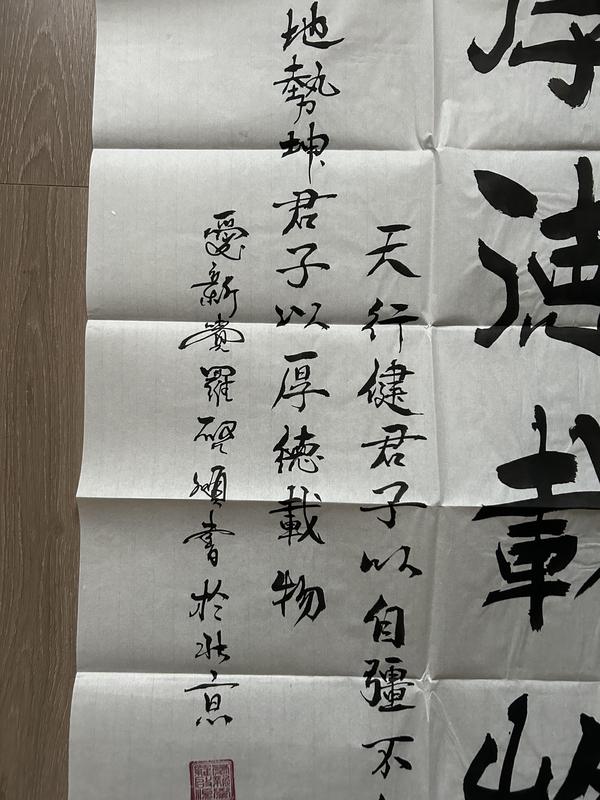 厚德載物
天行健君子以自彊不
地勢坤君子以厚德載物
愛新覺羅書於北京